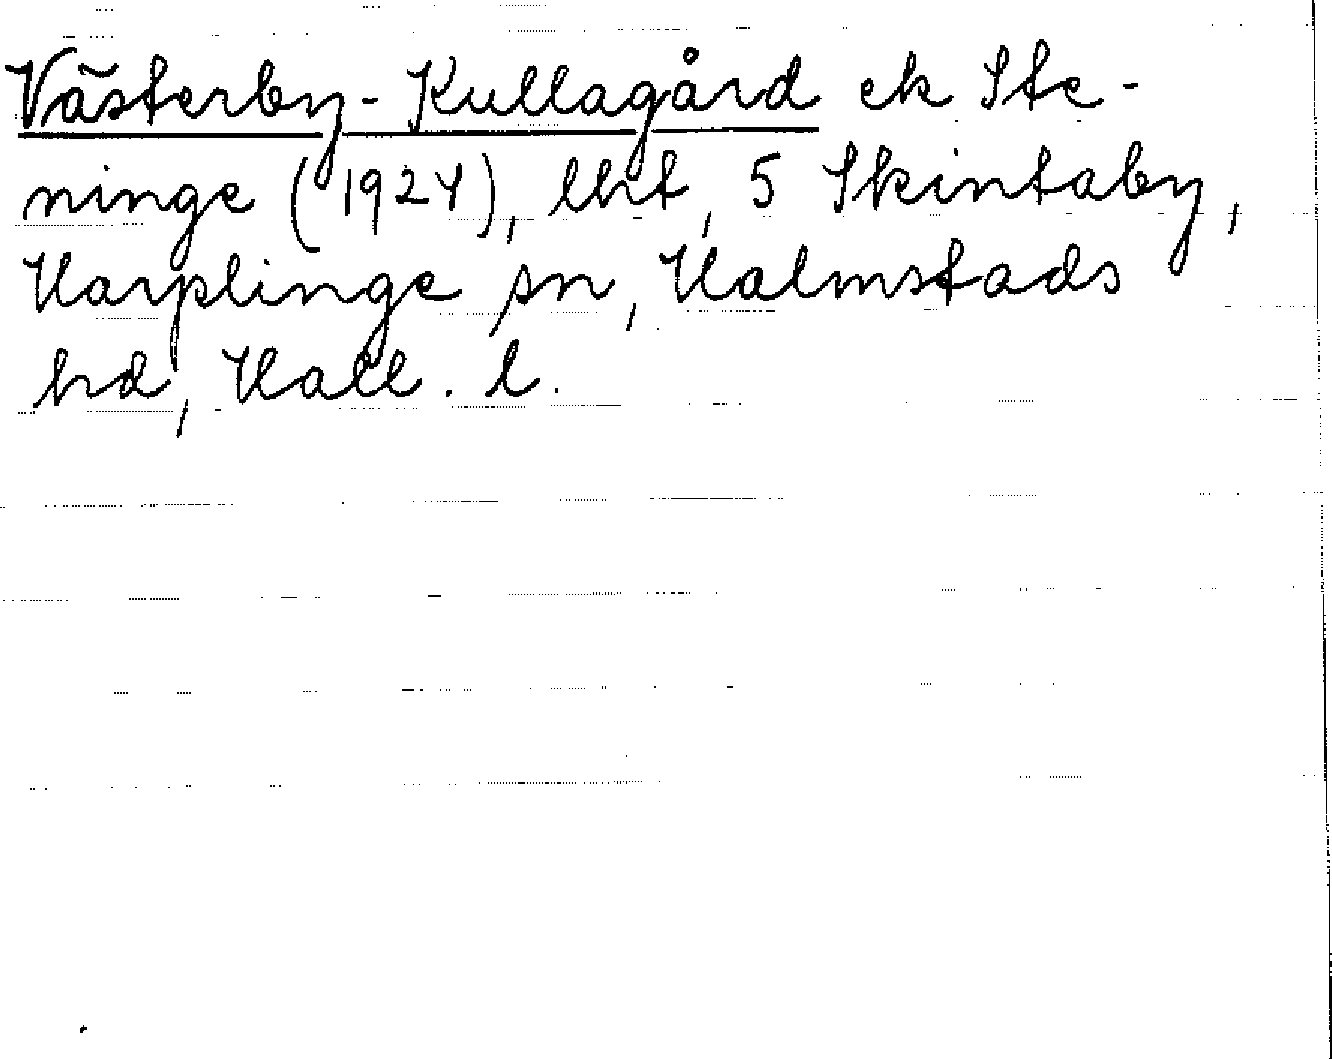 Västerby-Kullagård ek Ste-
ninge (1924), lht, 5 Skintaby,
Harplinge sn, Halmstads
hd, Hall. l.